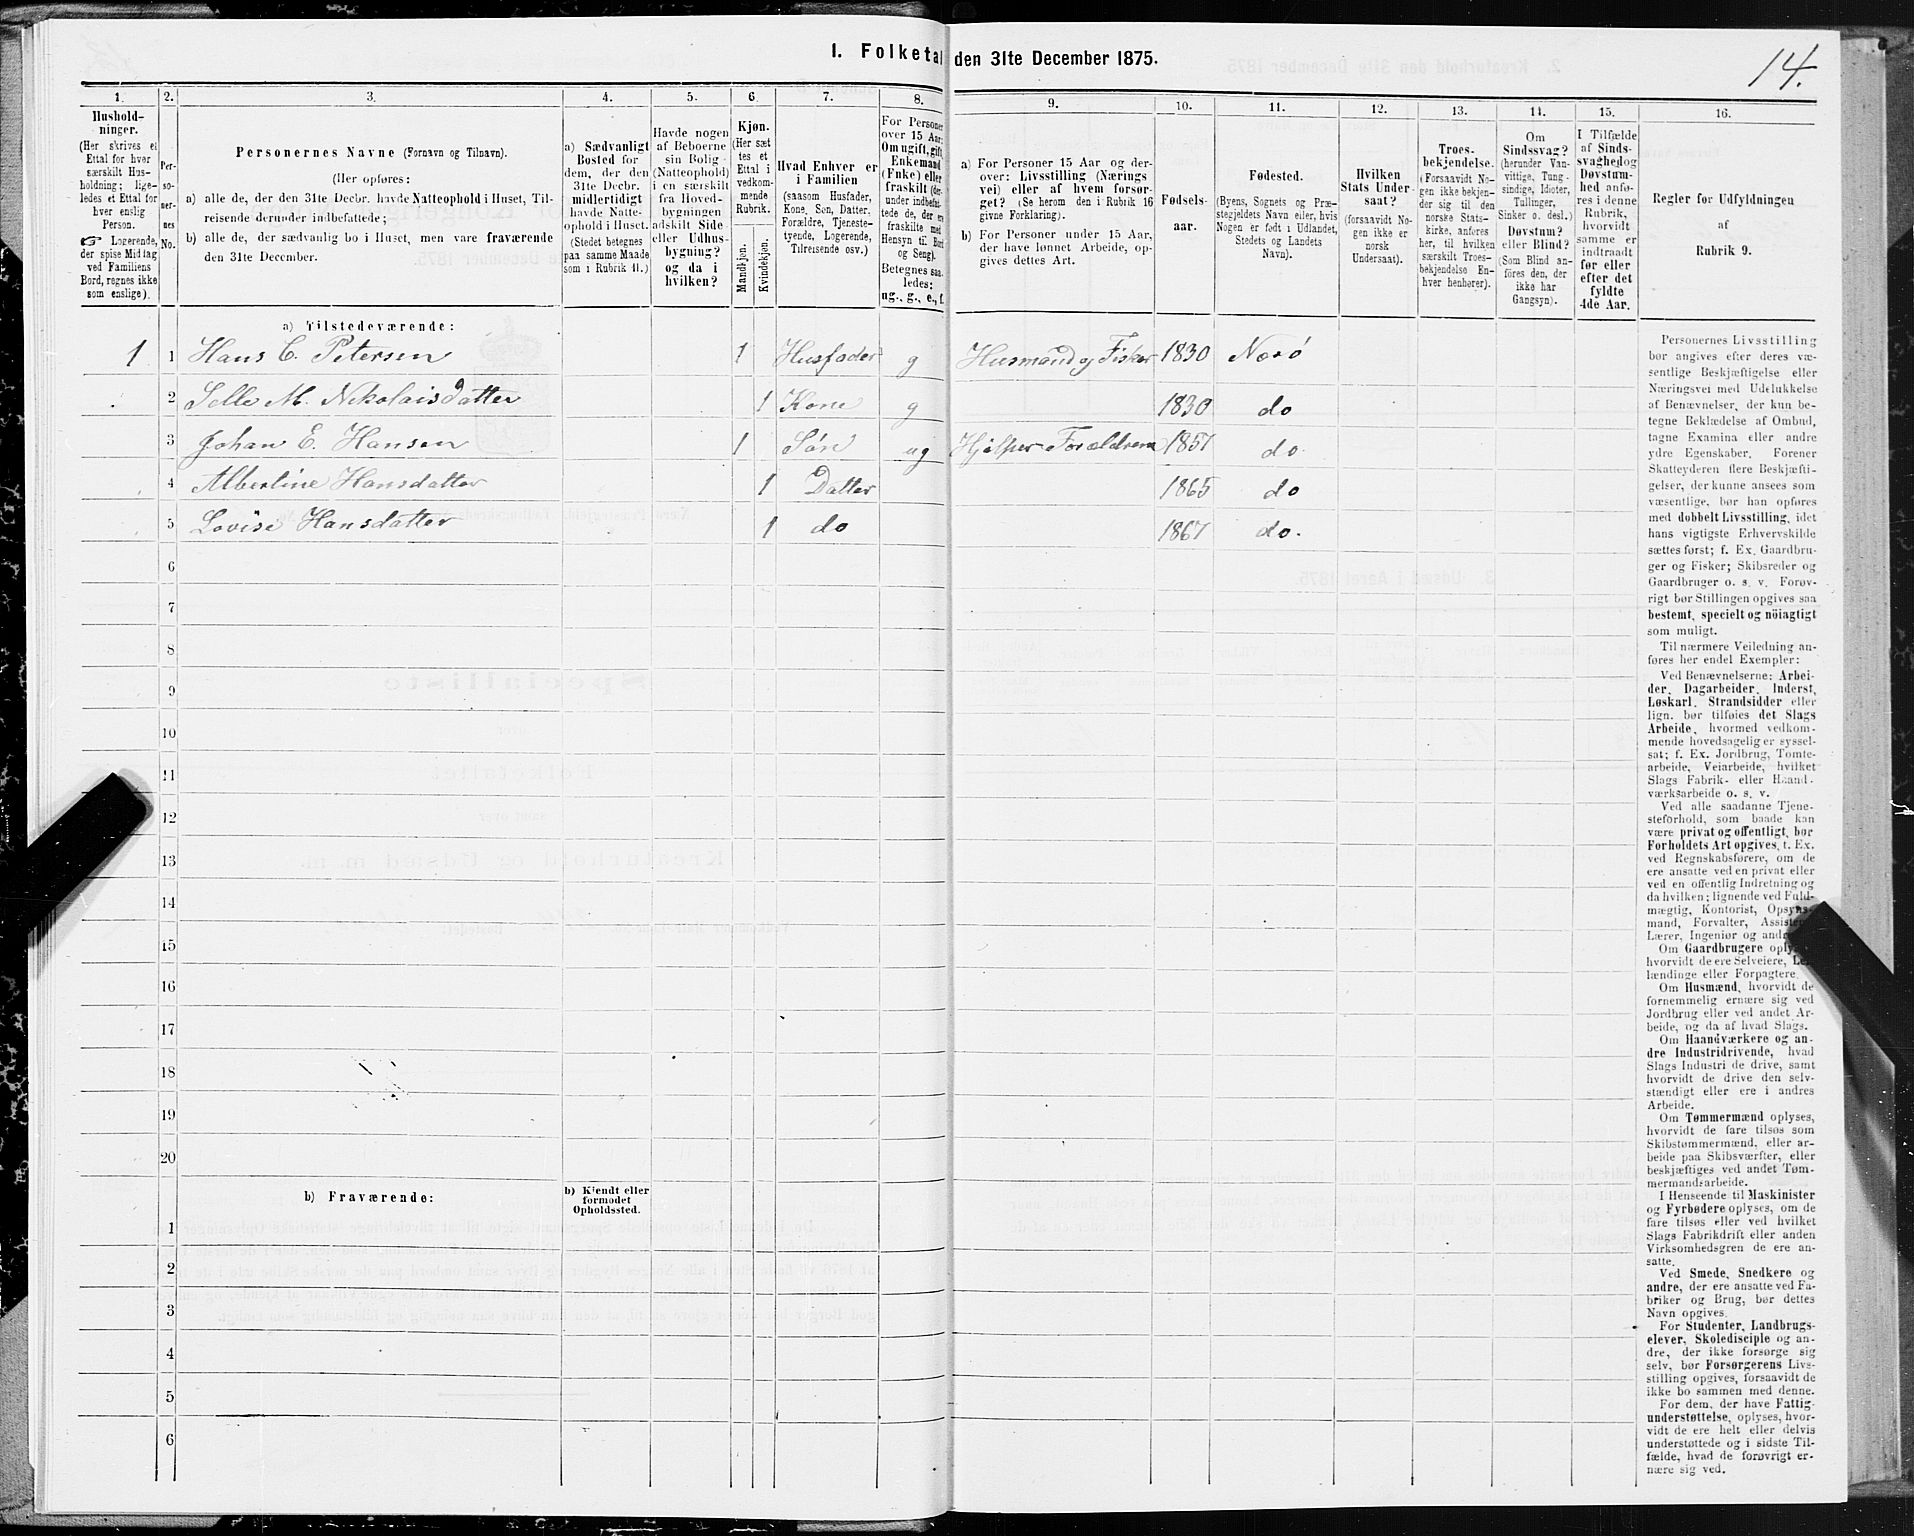 I. Folketal den 31te December 1875.
14.
1.
Hushold-
ninger.
(Her skrives et
Ettal for hver
særskilt Hus-
holdning; lige-
ledes et Ettal for
hver enslig
Person.
☞ Logerende,
der spise Middag
ved Familiens
Bord, regnes ikke
som enslige).
2.
Per-
so-
ner-
nes
No.
3.
Personernes Navne (Fornavn og Tilnavn).
(Her opføres:
a) alle de, der den 31te Decbr. havde Natteophold i Huset, Til-
reisende derunder indbefattede;
b) alle de, der sædvanlig bo i Huset, men vare fraværende
den 31te December.
4.
a) Sædvanligt
Bosted for
dem, der den
31te Decbr.
midlertidigt
havde Natte-
ophold i Huset.
(Stedet betegnes
paa samme Maade
som i Rubrik 11.)
5.
Havde nogen
af Beboerne
sin Bolig
(Natteophold)
i en særskilt
fra Hoved-
bygningen
adskilt Side-
eller Udhus-
bygning?
og da i
hvilken?
6.
Kjøn.
(Her sæt-
tes et
Ettal i
vedkom-
mende
Rubrik.
Mandkjøn.
Kvindekjøn.
7.
Hvad Enhver er
i Familien
(saasom Husfader,
Kone, Søn, Datter,
Forældre, Tjeneste-
tyende, Logerende,
Tilreisende osv.)
8.
For Personer
over 15 Aar:
Om ugift, gift,
Enkemand
(Enke) eller
fraskilt (der-
under indbefat-
tede de, der ere
fraskilte med
Hensyn til Bord
og Seng).
Betegnes saa-
ledes:
ug., g., e., f.
9.
a) For Personer 15 Aar og der-
over: Livsstilling (Nærings-
vei) eller af hvem forsør-
get? (Se herom den i Rubrik 16
givne Forklaring).
b) For Personer under 15 Aar,
der have lønnet Arbeide, op-
gives dettes Art.
10.
Fødsels-
aar.
11.
Fødested.
(Byens, Sognets og Præ-
stegjeldets Navn eller, hvis
Nogen er født i Udlandet,
Stedets og Landets
Navn).
12.
Hvilken
Stats Under-
saat?
(forsaavidt No-
gen ikke er
norsk
Undersaat).
13.
Troes-
bekjendelse.
(Forsaavidt No-
gen ikke bekjen-
der sig til den
norske Stats-
kirke, anføres
her, til hvilken
særskilt Troes-
bekjendelse En-
hver henhører).
14.
Om
Sindssvag?
(herunder Van-
vittige, Tung-
sindige, Idioter,
Tullinger,
Sinker o. desl.)
Døvstum?
eller Blind?
(Som Blind an-
føres den, der
ikke har
Gangsyn).
15.
I Tilfælde
af Sinds-
svaghed og
Døvstum-
hed anfø-
res i denne
Rubrik,
hvorvidt
samme er
indtraadt
før eller
efter det
fyldte
4de Aar.
16.
Regler for Udfyldningen
af
Rubrik 9.
a) Tilstedeværende:
1 1 Hans C. Petersen 1 Husfader g Husmand og Fisker 1830 Nærø
2 Selle M. Nikolaisdatter 1 Kone g 1830 do
3 Johan E. Hansen 1 Søn ug Hjelper Forældrene 1857 do.
4 Albertine Hansdatter 1 Datter 1865 do
5 Lovise Hansdatter 1 do 1867 do.
6
7
8
9
10
11
12
13
14
15
16
17
18
19
20
b) Fraværende:
b) Kjendt eller
formodet
Opholdssted.
1
2
3
4
5
6
Personernes Livsstilling
bør angives efter deres væ-
sentlige Beskjæftigelse eller
Næringsvei med Udelukkelse
af Benævnelser, der kun be-
tegne Beklædelse af Ombud,
tagne Examina eller andre
ydre Egenskaber. Forener
Skatteyderen flere Beskjæfti-
gelser, der kunne ansees som
væsentlige, bør han opføres
med dobbelt Livsstilling, idet
hans vigtigste Erhvervskilde
sættes først; f. Ex. Gaardbru-
ger og Fisker; Skibsreder og
Gaardbruger o. s. v. Forøv-
rigt bør Stillingen opgives saa
bestemt, specielt og nöiagtigt
som muligt.
Til nærmere Veiledning an-
føres her endel Exempler:
Ved Benævnelserne: Arbei-
der, Dagarbeider, Inderst,
Løskarl, Strandsidder eller
lign. bør tilføies det Slags
Arbeide, hvormed vedkom-
mende hovedsagelig er syssel-
sat; f. Ex. Jordbrug, Tomte-
arbeide, Veiarbeide, hvilket
Slags Fabrik- eller Haand-
værksarbeide o. s. v.
Ved alle saadanne Tjene-
steforhold, som baade kan
være privat og offentligt, bør
Forholdets Art opgives, f. Ex.
ved Regnskabsførere, om de
ere ansatte ved en privat eller
ved en offentlig Indretning og
da hvilken; lignende ved Fuld-
mægtig, Kontorist, Opsyns-
mand, Forvalter, Assistent,
Lærer, Ingeniør og andre.
Om Gaardbrugere oplyses,
hvorvidt de ere Selveiere, Lei-
lændinge eller Forpagtere.
Om Husmænd, hvorvidt de
fornemmelig ernære sig ved
Jordbrug eller ved andet Ar-
beide, og da af hvad Slags.
Om Haandværkere og an-
dre Industridrivende, hvad
Slags Industri de drive, samt
hvorvidt de drive den selv-
stændigt eller ere i andres
Arbeide.
Om Tømmermænd oplyses,
hvorvidt de fare tilsøs som
Skibstømmermænd, eller ar-
beide paa Skibsværfter, eller
beskjæftiges ved andet Tøm-
mermandsarbeide.
I Henseende til Maskinister
og Fyrbødere oplyses, om de
fare tilsøs eller ved hvilket
Slags Fabrikdrift eller anden
Virksomhedsgren de ere an-
satte.
Ved Smede, Snedkere og
andre, der ere ansatte ved Fa-
briker og Brug, bør dettes
Navn opgives.
For Studenter, Landbrugs-
elever, Skoledisciple og an-
dre, der ikke forsørge sig
selv, bør Forsørgerens Livs-
stilling opgives, forsaavidt de
ikke bo sammen med denne.
For dem, der have Fattig-
understøttelse, oplyses, hvor-
vidt de ere helt eller delvis
understøttede og i sidste Til-
fælde, hvad de forøvrigt er-
nære sig ved.